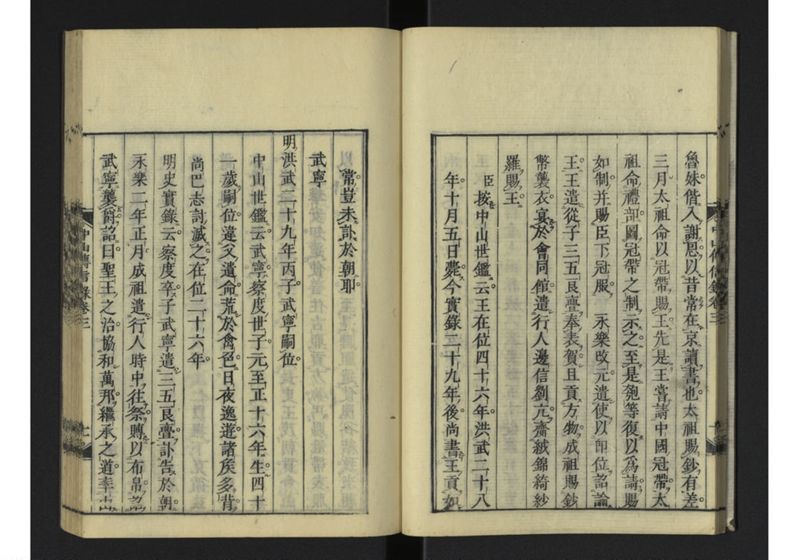 魯妹偕入謝恩以昔常在京讀書也太祖賜鈔有差
三月太祖命以冠帶賜王先是王嘗請中國冠帶太
祖命禮部圖冠帶之制示之至是匏等復以爲請賜
如制并賜臣下冠服 永樂改元遣使以即位詔諭
王王遣從子三五良亹奉表賀且貢方物成祖賜鈔
幣襲衣宴於會同館遣行人邊信劉亢齎絨錦綺紗
羅賜王
臣按中山世鑑云王在位四十六年洪武二十八
年十月五日薨今實錄二十九年後尚書王貢如
常豈未訃於朝耶
武寧
明洪武二十九年丙子武寧嗣位
中山世鑑云武寧察度世子元至正十六年生四十
一歲嗣位違父遺命荒於禽色日夜逸遊諸侯多背
尚巴志討滅之在位二十六年
明史實錄云察度卒子武寧遣三五良亹訃告於朝
永樂二年正月成祖遣行人時中往祭賻以布帛詔
武寧襲爵詔曰聖王之治協和萬邦繼承之道率由
中山傳信錄卷三